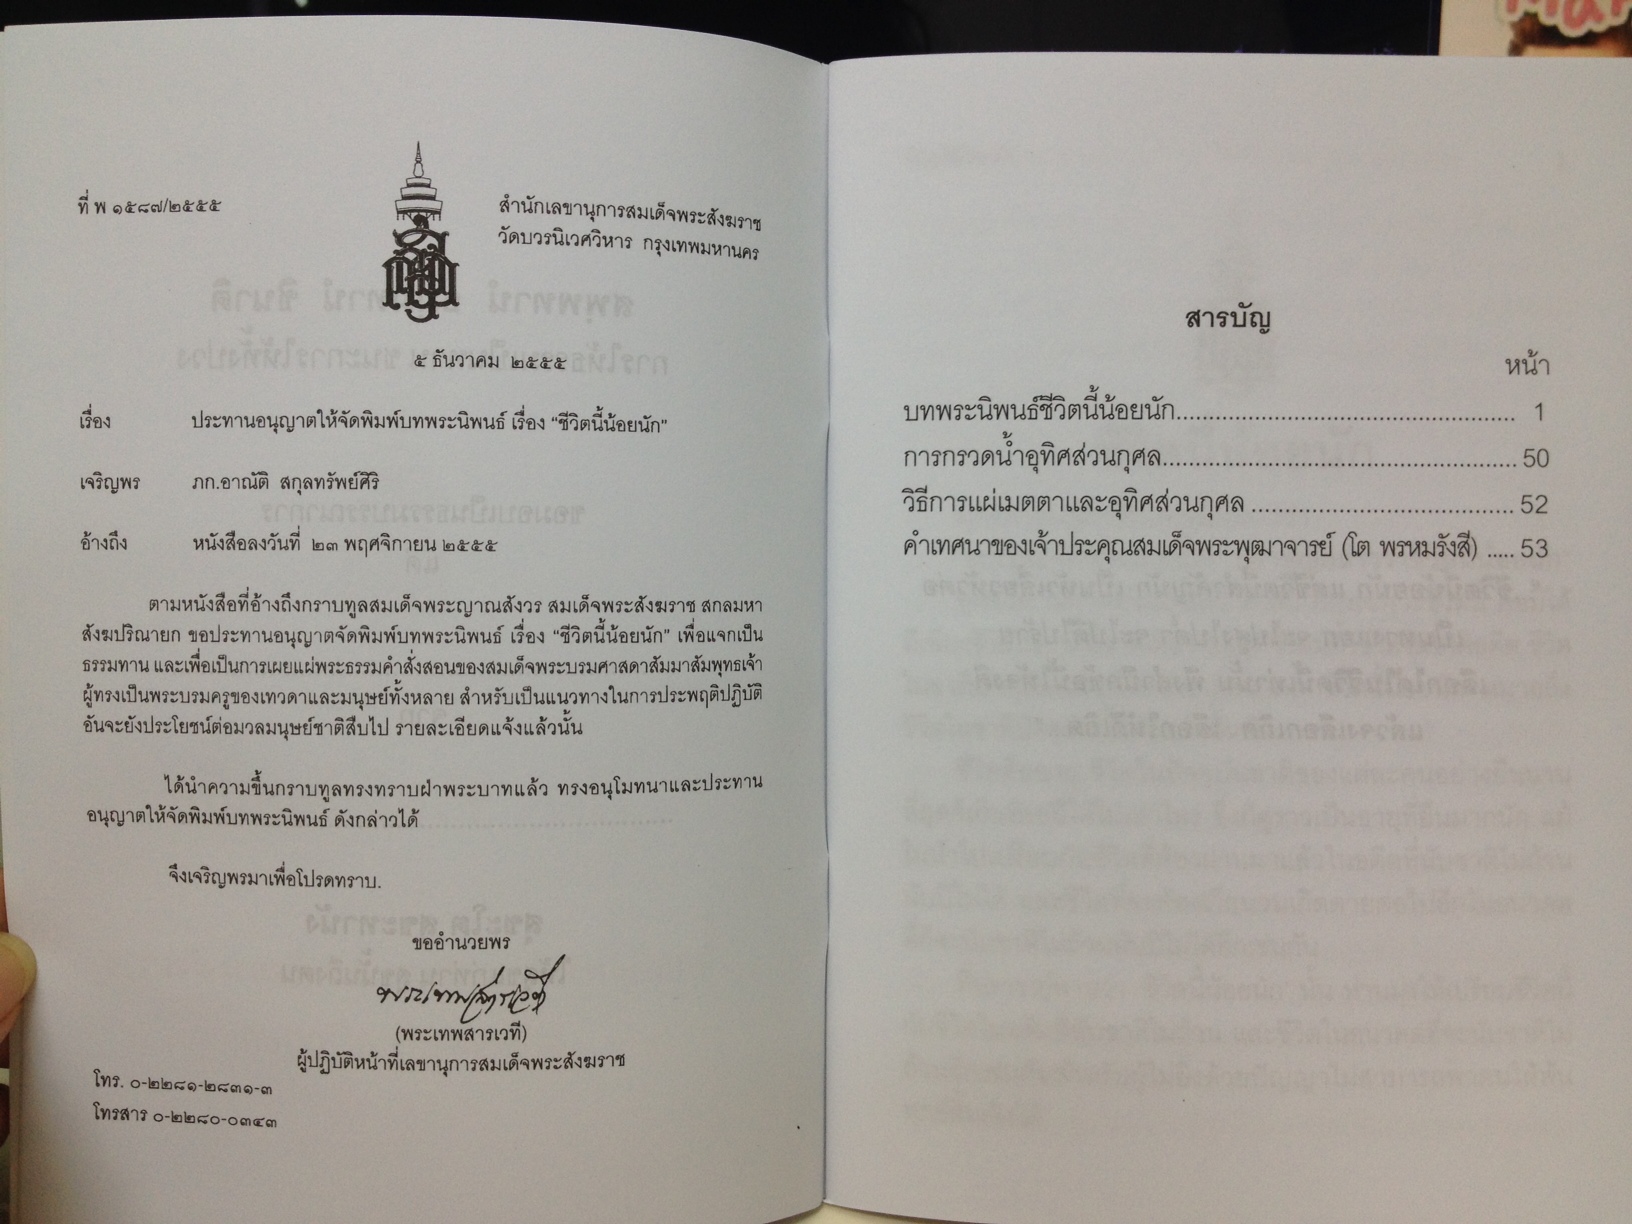 ที่ พ ๑๕๘๗/๒๕๕๕
สำนักเลขานุการสมเด็จพระสังฆราช
วัดบวรนิเวศวิหาร กรุงเทพมหานคร
๕ ธันวาคม ๒๕๕๕
เรื่อง ประทานอนุญาตให้จัดพิมพ์บทพระนิพนธ์ เรื่อง "ชีวิตนี้น้อยนัก"
เจริญพร ภก.อาณัติ สกุลทรัพย์ศิริ
อ้างถึง หนังสือลงวันที่ ๒๓ พฤศจิกายน ๒๕๕๕
ตามหนังสือที่อ้างถึงกราบทูลสมเด็จพระญาณสังวร สมเด็จพระสังฆราช สกลมหา
สังฆปริณายก ขอประทานอนุญาตจัดพิมพ์บทพระนิพนธ์ เรื่อง "ชีวิตนี้น้อยนัก" เพื่อแจกเป็น
ธรรมทาน และเพื่อเป็นการเผยแผ่พระธรรมคำสั่งสอนของสมเด็จพระบรมศาสดาสัมมาสัมพุทธเจ้า
ผู้ทรงเป็นพระบรมครูของเทวดาและมนุษย์ทั้งหลาย สำหรับเป็นแนวทางในการประพฤติปฏิบัติ
อันจะยังประโยชน์ต่อมวลมนุษย์ชาติสืบไป รายละเอียดแจ้งแล้วนั้น
ได้นำความขึ้นกราบทูลทรงทราบฝ่าพระบาทแล้ว ทรงอนุโมทนาและประทาน
อนุญาตให้จัดพิมพ์บทพระนิพนธ์ ดังกล่าวได้
จึงเจริญพรมาเพื่อโปรดทราบ.
ขออำนวยพร
พระเทพสารเวที
(พระเทพสารเวที)
ผู้ปฏิบัติหน้าที่เลขานุการสมเด็จพระสังฆราช
โทร. ๐-๒๒๘๑-๒๘๓๑-๓
โทรสาร ๐-๒๒๘๐-๐๓๔๓
สารบัญ
หน้า
บทพระนิพนธ์ชีวิตนี้น้อยนัก.................................................. 1
การกรวดน้ำอุทิศส่วนกุศล..................................................... 50
วิธีการแผ่เมตตาและอุทิศส่วนกุศล ....................................... 52
คำเทศนาของเจ้าประคุณสมเด็จพระพุฒาจารย์ (โต พรหมรังสี) ..... 53